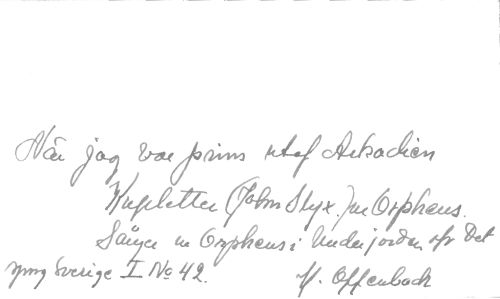 När jag var prins utaf Arkadien
Kupletter (John Styx.) ur Orpheus.
Sånger ur Orpheus i Underjorden afr Det
sjung Sverige I No 42. J. Offenbach